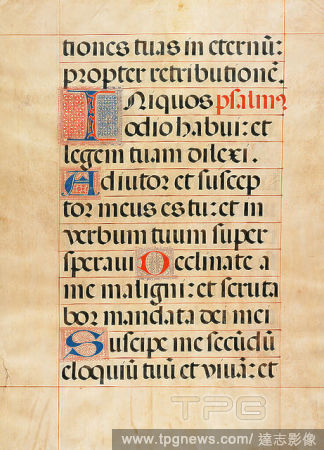 tiones tuas in eternū:
propter retributionē.
Iniquos psalmꝰ
odio habui: et
legem tuam dilexi.
Adiutor et suscep
tor meus es tu: et in
verbum tuum super
speraui Declinate a
me maligni: et scruta
bor mandata dei mei
Suscipe me secūdū
eloquiū tuū et viuā: et
TPG
www.tpgnews.com / 達志影像